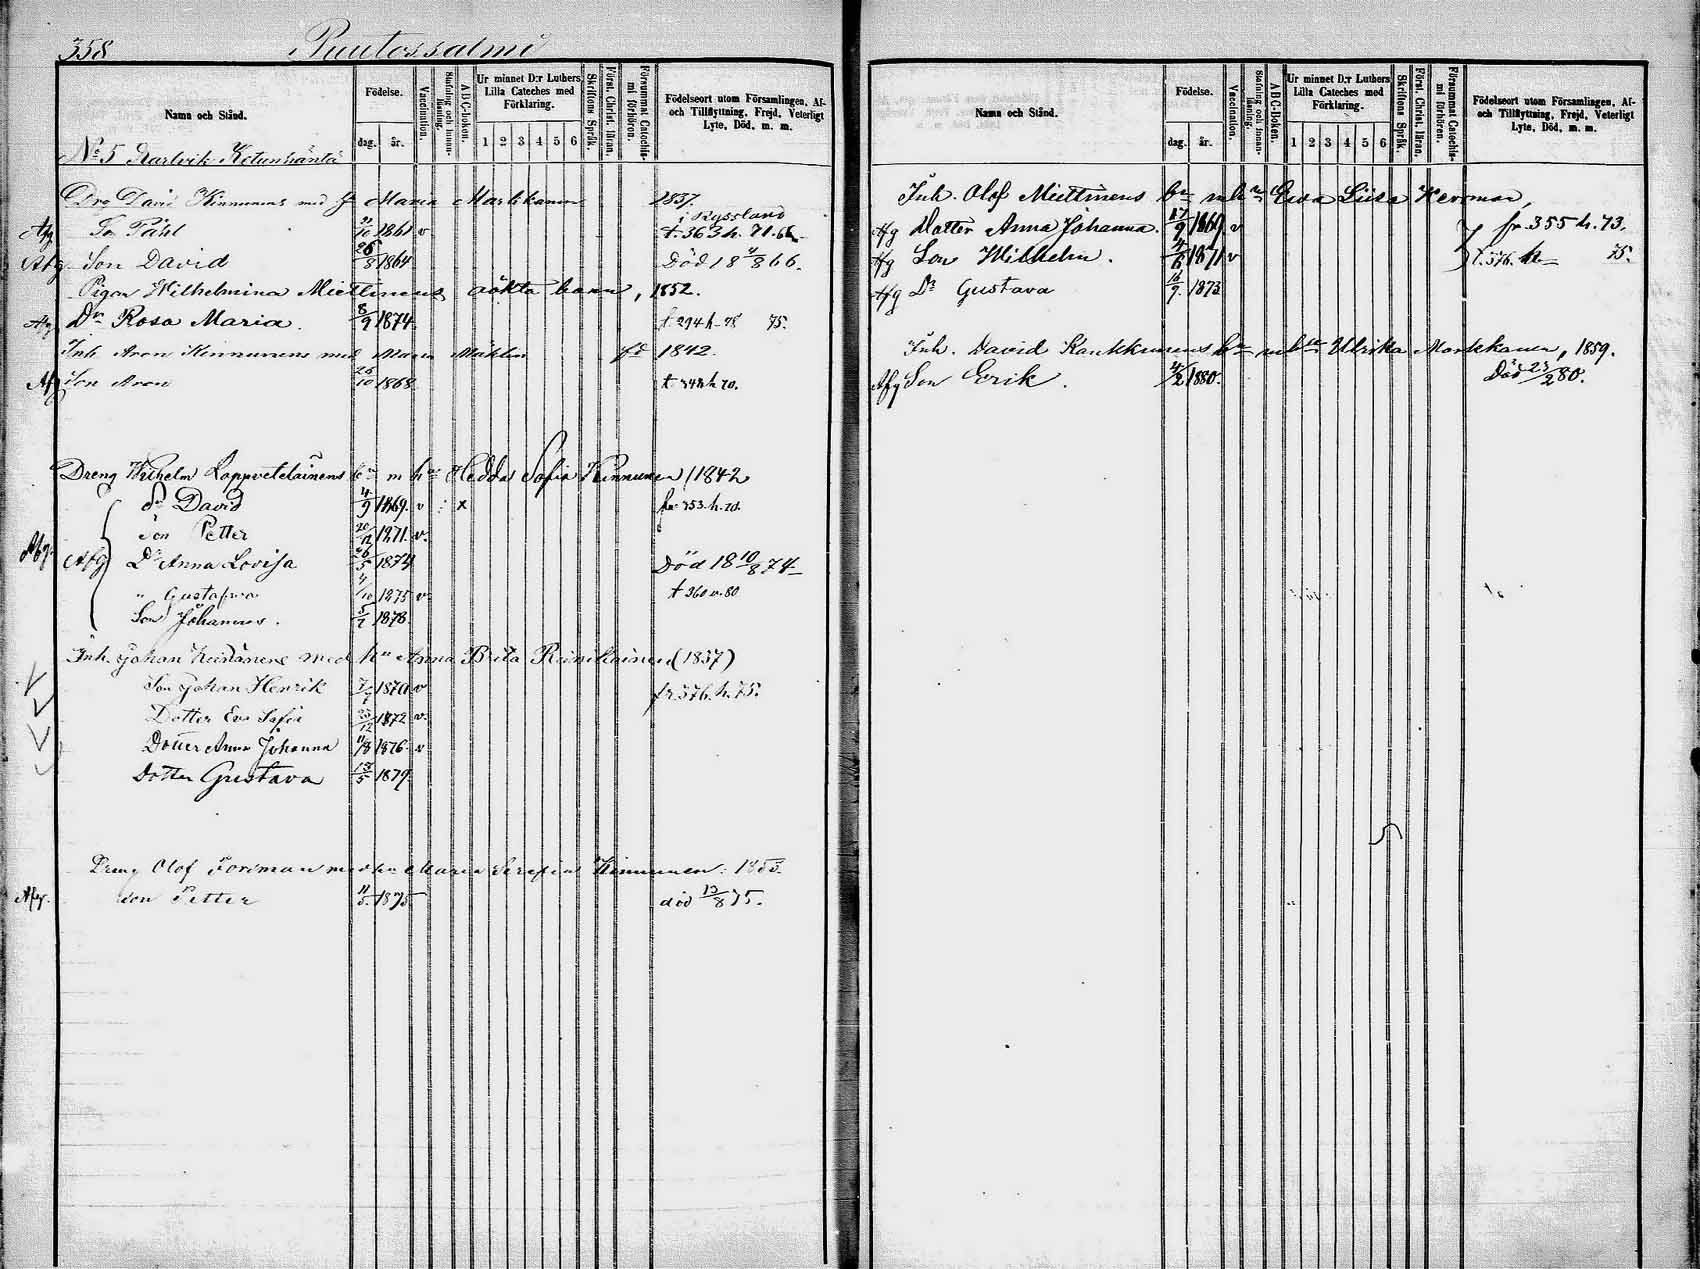 358 Puutossalmi
Namn och Stånd.
Födelse.
dag. år.
Vaccination.
Stafning och innanläsning.
A B C-boken.
Ur minnet D:r Luthers Lilla Cateches med Förklaring.
1 2 3 4 5 6
Skriftens Språk.
Först. Christ. läran.
Försummat Catechismi förhören.
Födelseort utom Församlingen, Af- och Tillflyttning, Frejd, Veterligt Lyte, Död, m. m.
No 5 Ketunranta
Drg David Kinnunens med Maria Markkanen 1837.
i Ryssland
Afg Son Påhl 21/10 1861 v t. 363 h. 71.
Afg Son David 26/8 1864 Död 18 4/8 66.
Pigan Wilhelmina Miettinens oäkta barn, 1852.
Afg Dr Rosa Maria. 8/9 1874 t. 294 h 75.
Inh. Aron Kinnunens med Maria fd 1842.
Afg Son Aron 26/10 1868 t h 70.
Dreng Wilhelm Lappvetelainens bn m hu Hedda Sofia Kinnunen (1842
Sn David 4/9 1869. v x fr 353. h. 70.
Son Petter 20/12 1871. v.
Afg. Afg Dr Anna Lovisa 26/5 1874 Död 18 10/8 74
" Gustafva 4/10 1875 v t 360 v. 80
Son Johannes. 5/7 1878.
Inh. Johan med hu Anna Brita (1837)
Son Johan Henrik 1870 v fr 376. h. 75.
Dotter Eva Sofia 23/12 1872 v.
Dotter Anna Johanna 11/8 1876 v
Dotter Gustava 13/5 1879.
Dreng Olof Forsman med hu Maria Serafia Kinnunen. 1853
Afg. Son Petter 11/5. 1875 död 13/8 75.
Namn och Stånd.
Födelse.
dag. år.
Vaccination.
Stafning och innanläsning.
A B C-boken.
Ur minnet D:r Luthers Lilla Cateches med Förklaring.
1 2 3 4 5 6
Skriftens Språk.
Först. Christ. läran.
Försummat Catechismi förhören.
Födelseort utom Församlingen, Af- och Tillflyttning, Frejd, Veterligt Lyte, Död, m. m.
Inh. Olof Miettinens bn m hu Ewa Liisa Kerman,
Afg Dotter Anna Johanna. 17/9 1869. v fr. 355 h. 73.
Afg Son Wilhelm. 4/6 1871 v t. 376. h 75.
Afg Dr Gustava 14/9. 1873
Inh. David Kaukkunens bn m hu Ulrika Markkanen, 1859.
Afg Son Erik. 4/2 1880. Död 23/2 80.